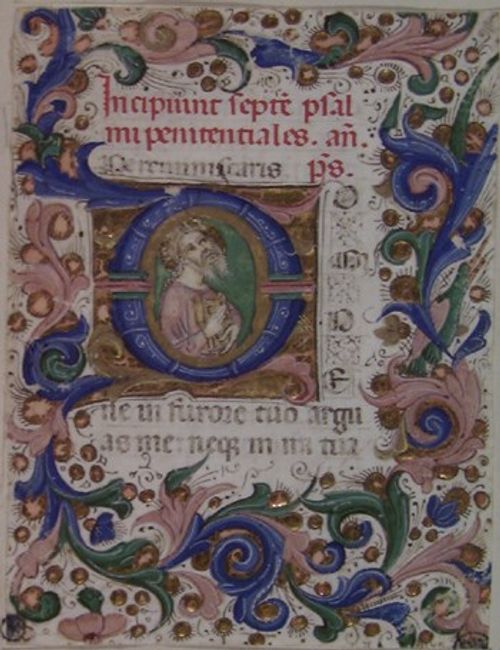 Incipiunt septē psal
mi penitentiales. añ.
Ne reminiscaris p̄s.
D
O
M
I
N
E
ne in furore tuo argu
as me: neqȝ in ira tua